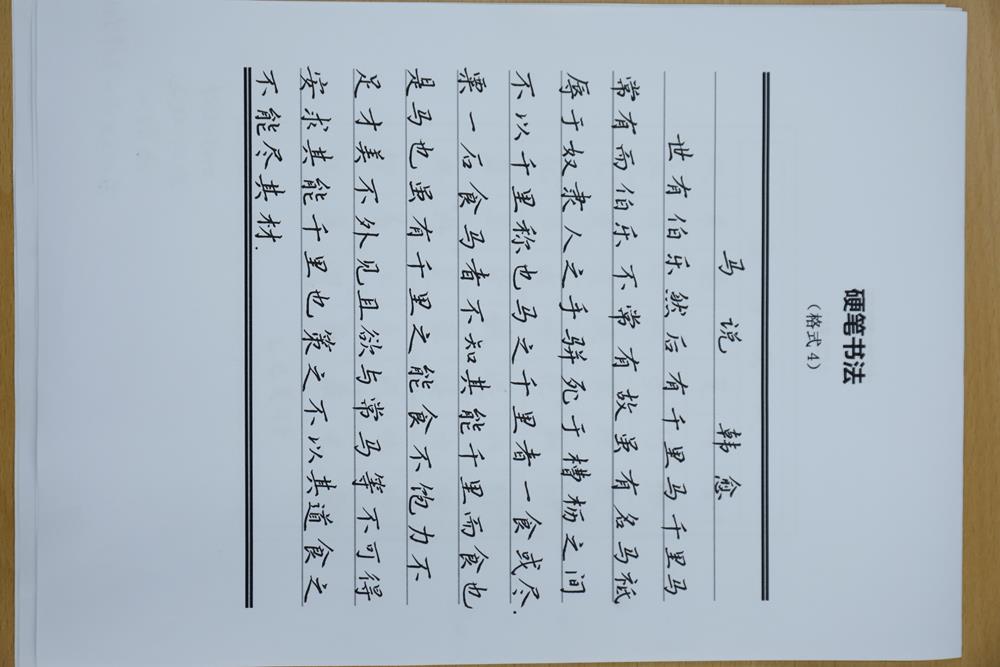 硬笔书法
（格式 4）
马说 韩愈
世有伯乐然后有千里马千里马
常有而伯乐不常有故虽有名马祗
辱于奴隶人之手骈死于槽枥之间
不以千里称也马之千里者一食或尽
粟一石食马者不知其能千里而食也
是马也虽有千里之能食不饱力不
足才美不外见且欲与常马等不可得
安求其能千里也策之不以其道食之
不能尽其材.